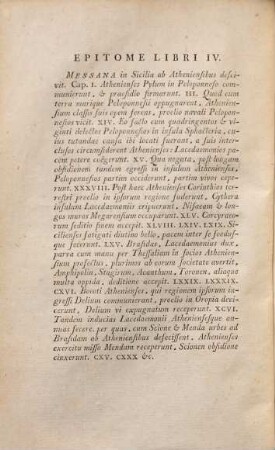 EPITOME LIBRI IV.
MESSANA in Sicilia ab Atheniensibus desci-
vit. Cap. I. Athenienses Pylum in Peloponneso com-
muniverunt, & praesidio firmarunt. III. Quod cum
terra marique Peloponnesii oppugnarent, Athenien-
sium classis suis opem ferens, proelio navali Pelopon-
nesios vicit. XIV. Eo facto cum quadringentos & vi-
ginti delectos Peloponnesios in insula Sphacteria, cu-
ius tutandae causa ibi locati fuerant, a suis inter-
clusos circumsiderent Athenienses Lacedaemonii pa-
cem petere coëgerunt. XV. Qua negata, post longam
obsidionem tandem egressi in insulam Athenienses,
Peloponnesios partim occiderunt, partim vivos cepe-
runt. XXXVIII. Post haec Athenienses Corinthios ter-
restri proelio in ipsorum regione fuderunt, Cythera
insulam Lacedaemoniis ceperunt. Nisaeam & lon-
gos muros Megarensium occuparunt. XLV. Corcyraeo-
rum seditio finem accepit. XLVIII. LXIV. LXIX. Si-
cilienses fatigati diutino bello, pacem inter se foedus-
que fecerunt. LXV. Brasidas, Lacedaemonius dux,
parva cum manu per Thessaliam in socios Athenien-
sium profectus, plurimos ab eorum societate avertit,
Amphipolin, Stagirum, Acanthum, Toronen, aliaque
multa oppida, deditione accepit. LXXIX. LXXXIX.
CXVI. Boeoti Athenienses, qui regionem ipsorum in-
gressi Delium communierant, proelio in Oropia devi-
cerunt, Delium vi expugnatum receperunt. XCVI.
Tandem inducias Lacedaemonii Atheniensesque an-
nuas fecere. per quas, cum Scione & Menda urbes ad
Brasidam ab Atheniensibus defecissent, Athenienses
exercitu misso Mendam receperunt, Scionen obsidione
cinxerunt. CXV. CXXX &c.